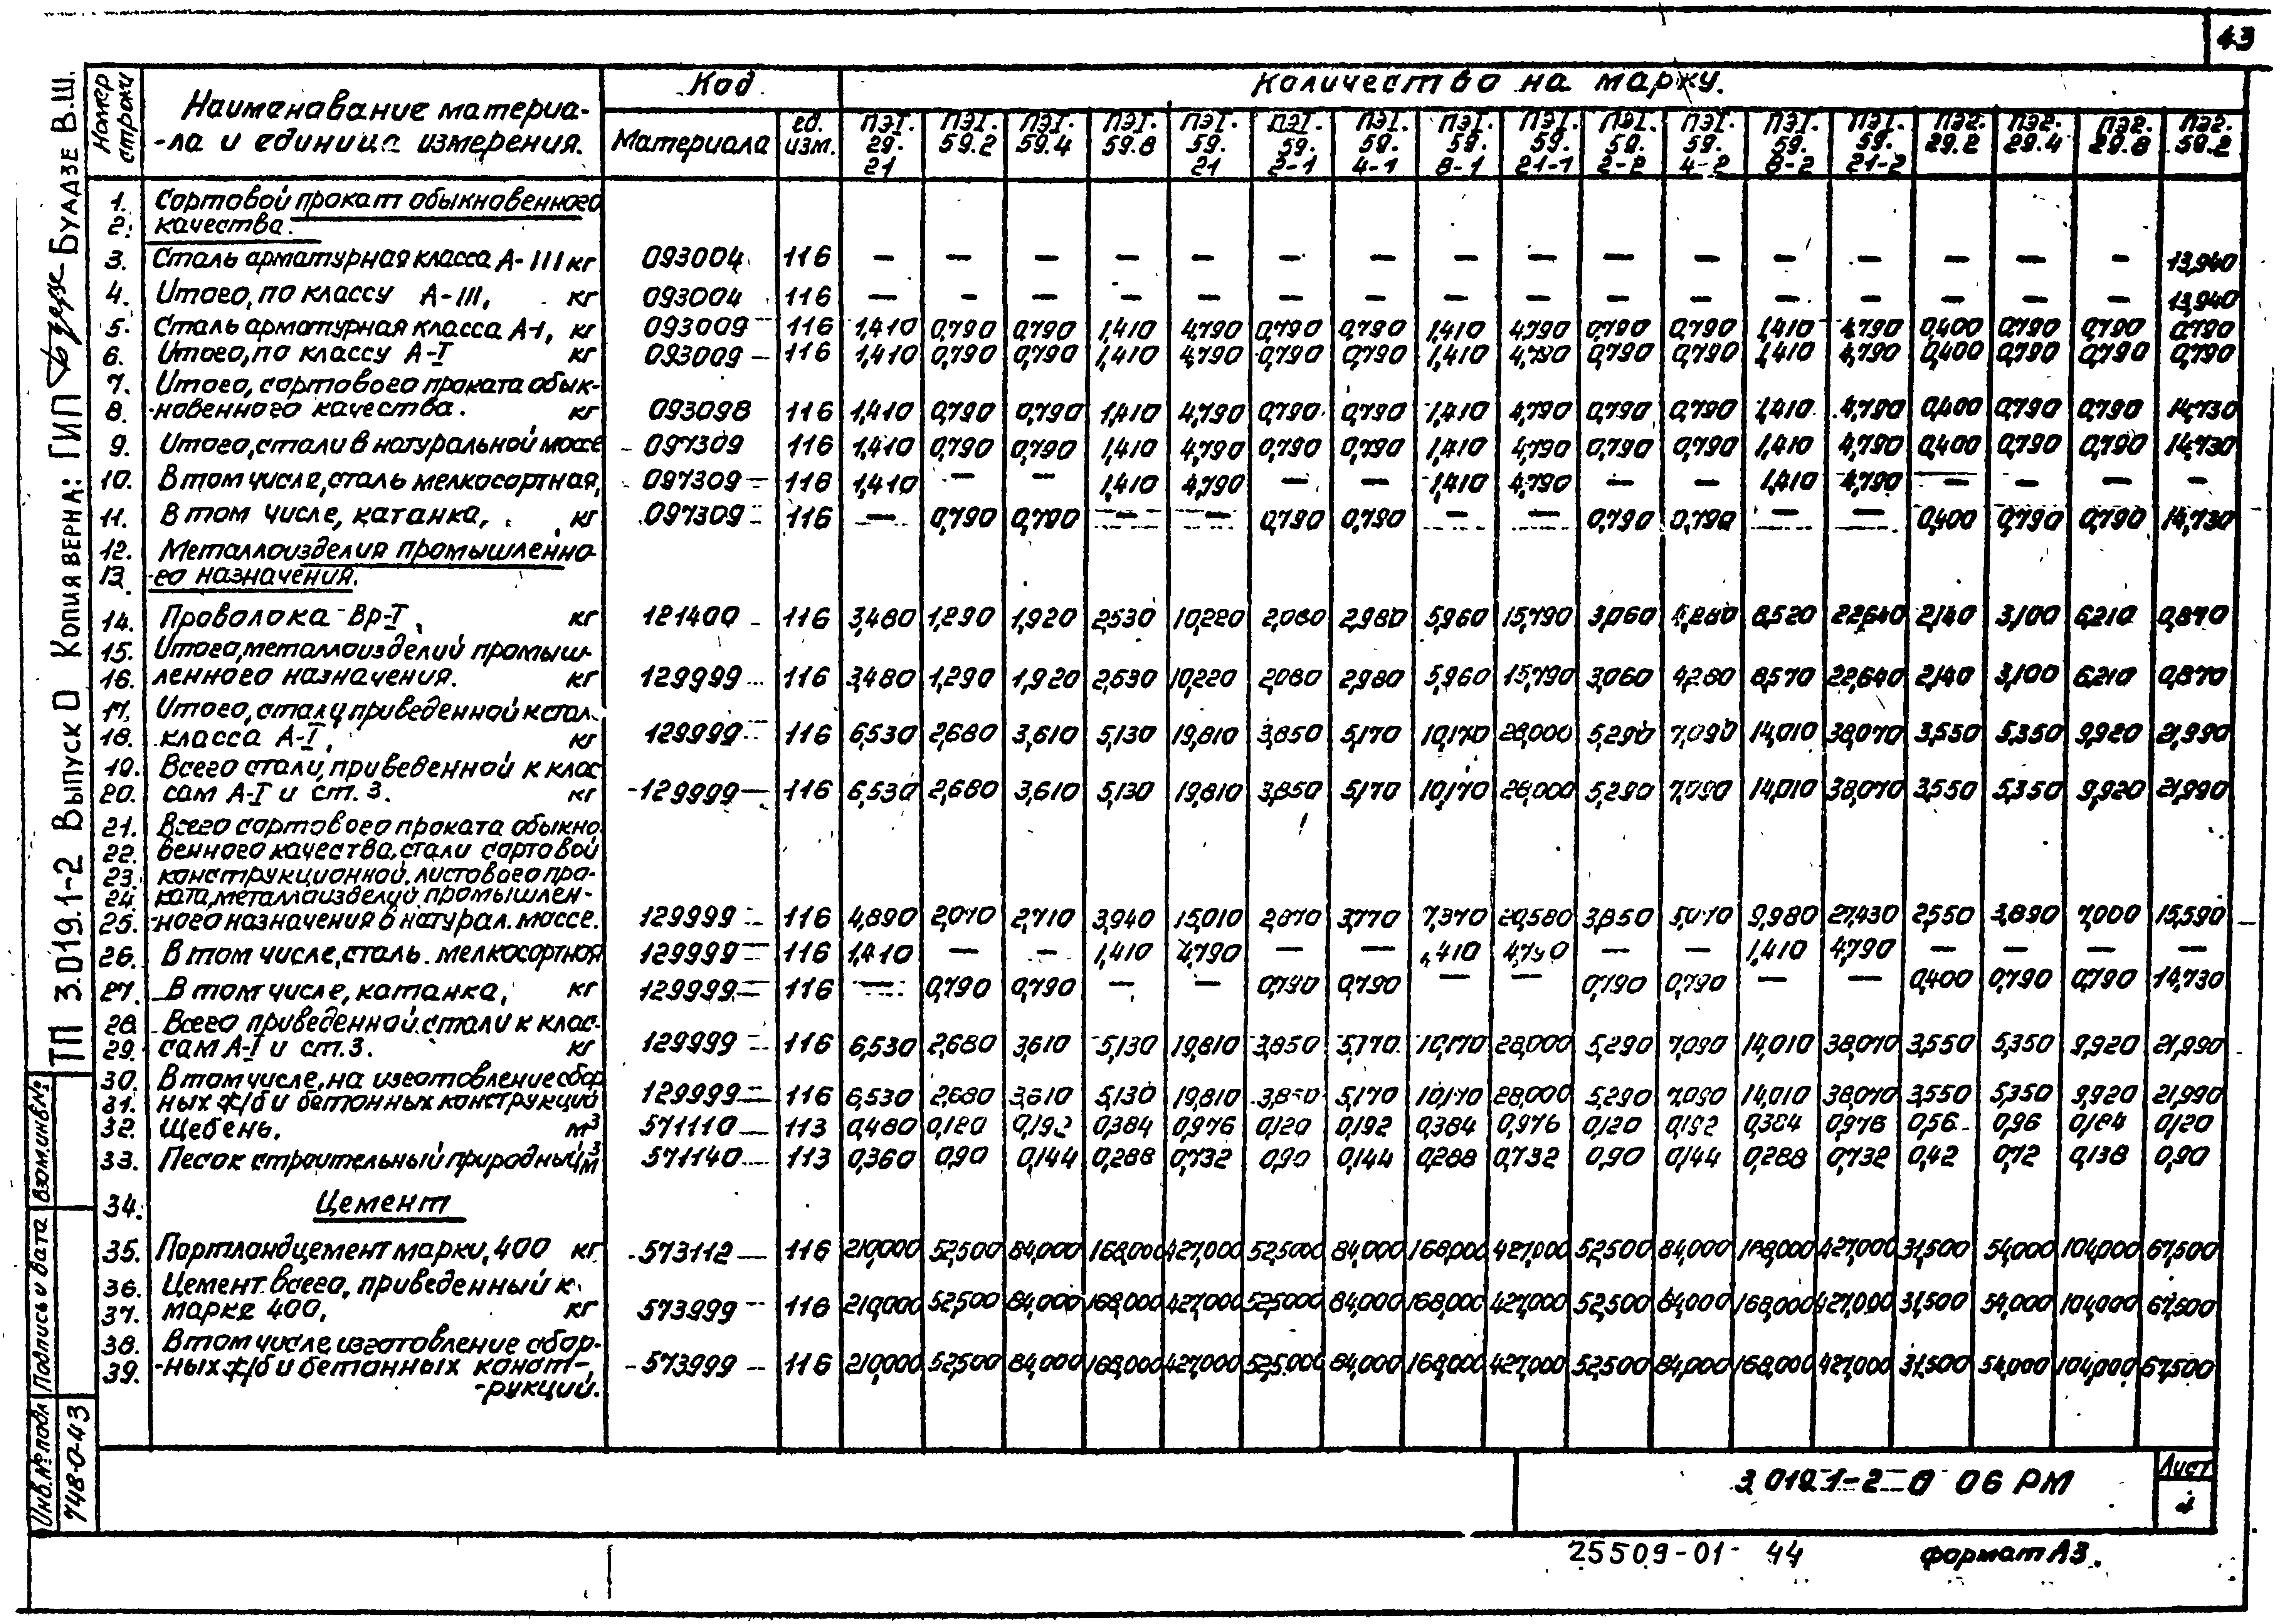 43
Номер строки
Наименование материа-
-ла и единица измерения.
Код
Количество на марку.
Материала
ед. изм.
ПЭ1. 29. 21
ПЭ1. 59.2
ПЭ1. 59.4
ПЭ1. 59.8
ПЭ1. 59. 21
ПЭ1. 59. 2-1
ПЭ1. 59. 4-1
ПЭ1. 59. 8-1
ПЭ1. 59. 21-1
ПЭ1. 59. 2-2
ПЭ1. 59. 4-2
ПЭ1. 59. 8-2
ПЭ1. 59. 21-2
ПЭ2. 29.2
ПЭ2. 29.4
ПЭ2. 29.8
ПЭ2. 59.2
1. Сортовой прокат обыкновенного
2. качества.
3. Сталь арматурная класса А-III кг 093004 116 — — — — — — — — — — — — — — — — 13,940
4. Итого, по классу А-III, кг 093004 116 — — — — — — — — — — — — — — — — 13,940
5. Сталь арматурная класса А-1, кг 093009 116 1,410 0,790 0,790 1,410 4,790 0,790 0,790 1,410 4,790 0,790 0,790 1,410 4,790 0,400 0,790 0,790 0,790
6. Итого, по классу А-I кг 093009 116 1,410 0,790 0,790 1,410 4,790 0,790 0,790 1,410 4,790 0,790 0,790 1,410 4,790 0,400 0,790 0,790 0,790
7. Итого, сортового проката обык-
8. -новенного качества. кг 093098 116 1,410 0,790 0,790 1,410 4,790 0,790 0,790 1,410 4,790 0,790 0,790 1,410 4,790 0,400 0,790 0,790 14,730
9. Итого, стали в натуральной массе 097309 116 1,410 0,790 0,790 1,410 4,790 0,790 0,790 1,410 4,790 0,790 0,790 1,410 4,790 0,400 0,790 0,790 14,730
10. В том числе, сталь мелкосортная, 097309 116 1,410 — — 1,410 4,790 — — 1,410 4,790 — — 1,410 4,790 — — — —
11. В том числе, катанка, кг 097309 116 — 0,790 0,790 — — 0,790 0,790 — — 0,790 0,790 — — 0,400 0,790 0,790 14,730
12. Металлоизделия промышленно-
13. -го назначения.
14. Проволока Вр-I, кг 121400 116 3,480 1,290 1,920 2,530 10,220 2,080 2,980 5,960 15,790 3,060 4,280 8,520 22,640 2,140 3,100 6,210 0,870
15. Итого, металлоизделий промыш-
16. ленного назначения. кг 129999 116 3,480 1,290 1,920 2,530 10,220 2,080 2,980 5,960 15,790 3,060 4,280 8,570 22,640 2,140 3,100 6,210 0,870
17. Итого, стали приведенной к стал.
18. класса А-I, кг 129999 116 6,530 2,680 3,610 5,130 19,810 3,850 5,170 10,170 28,000 5,290 7,090 14,010 38,070 3,550 5,350 9,920 21,990
19. Всего стали, приведенной к клас
20. сам А-I и ст.3. кг 129999 116 6,530 2,680 3,610 5,130 19,810 3,850 5,170 10,170 28,000 5,290 7,090 14,010 38,070 3,550 5,350 9,920 21,990
21. Всего сортового проката обыкно
22. венного качества, стали сортовой
23. конструкционной, листового про-
24. ката, металлоизделий промышлен-
25. -ного назначения в натурал. массе. 129999 116 4,890 2,070 2,710 3,940 15,010 2,870 3,770 7,370 20,580 3,850 5,070 9,980 27,430 2,550 3,890 7,000 15,590
26. В том числе, сталь мелкосортная 129999 116 1,410 — — 1,410 4,790 — — 1,410 4,790 — — 1,410 4,790 — — — —
27. В том числе, катанка, кг 129999 116 — 0,790 0,790 — — 0,790 0,790 — — 0,790 0,790 — — 0,400 0,790 0,790 14,730
28. Всего приведенной стали к клас-
29. сам А-I и ст.3. кг 129999 116 6,530 2,680 3,610 5,130 19,810 3,850 5,170 10,170 28,000 5,290 7,090 14,010 38,070 3,550 5,350 9,920 21,990
30. В том числе, на изготовление сбор
31. ных ж/б и бетонных конструкций 129999 116 6,530 2,680 3,610 5,130 19,810 3,850 5,170 10,170 28,000 5,290 7,090 14,010 38,070 3,550 5,350 9,920 21,990
32. Щебень, м³ 571110 113 0,480 0,120 0,192 0,384 0,976 0,120 0,192 0,384 0,976 0,120 0,192 0,384 0,976 0,56 0,96 0,184 0,120
33. Песок строительный природный, м³ 571140 113 0,360 0,90 0,144 0,288 0,732 0,90 0,144 0,288 0,732 0,90 0,144 0,288 0,732 0,42 0,72 0,138 0,90
34. Цемент
35. Портландцемент марки, 400 кг 573112 116 210,000 52,500 84,000 168,000 427,000 52,5000 84,000 168,000 427,000 52,500 84,000 168,000 427,000 31,500 54,000 104,000 67,500
36. Цемент всего, приведенный к
37. марке 400, кг 573999 116 210,000 52,500 84,000 168,000 427,000 52,5000 84,000 168,000 427,000 52,500 84,000 168,000 427,000 31,500 54,000 104,000 67,500
38. В том числе изготовление сбор-
39. -ных ж/б и бетонных конст-, 573999 116 210,000 52,500 84,000 168,000 427,000 52,5000 84,000 168,000 427,000 52,500 84,000 168,000 427,000 31,500 54,000 104,000 67,500
-рукций.
ТП 3.019.1-2 Выпуск 0 Копия верна: ГИП Буадзе В.Ш.
Взам.инв№
Подпись и дата
Инв.№ подл
748-0-43
3.019.1-2 0 06 РМ
Лист
25509-01 44
формат А3.